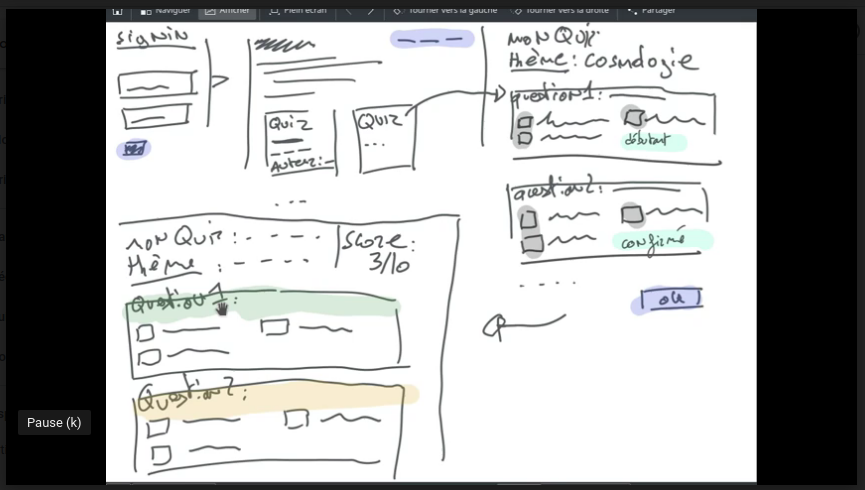 Naviguer Afficher Plein écran Tourner vers la gauche Tourner vers la droite Partager
signin
Quiz
Auteur:
Quiz
...
non Quiz
thème: cosmologie
question1:
débutant
question2:
confirmé
....
ok
...
non Quiz:
thème:
Score:
3/10
Question1:
Question2:
Pause (k)